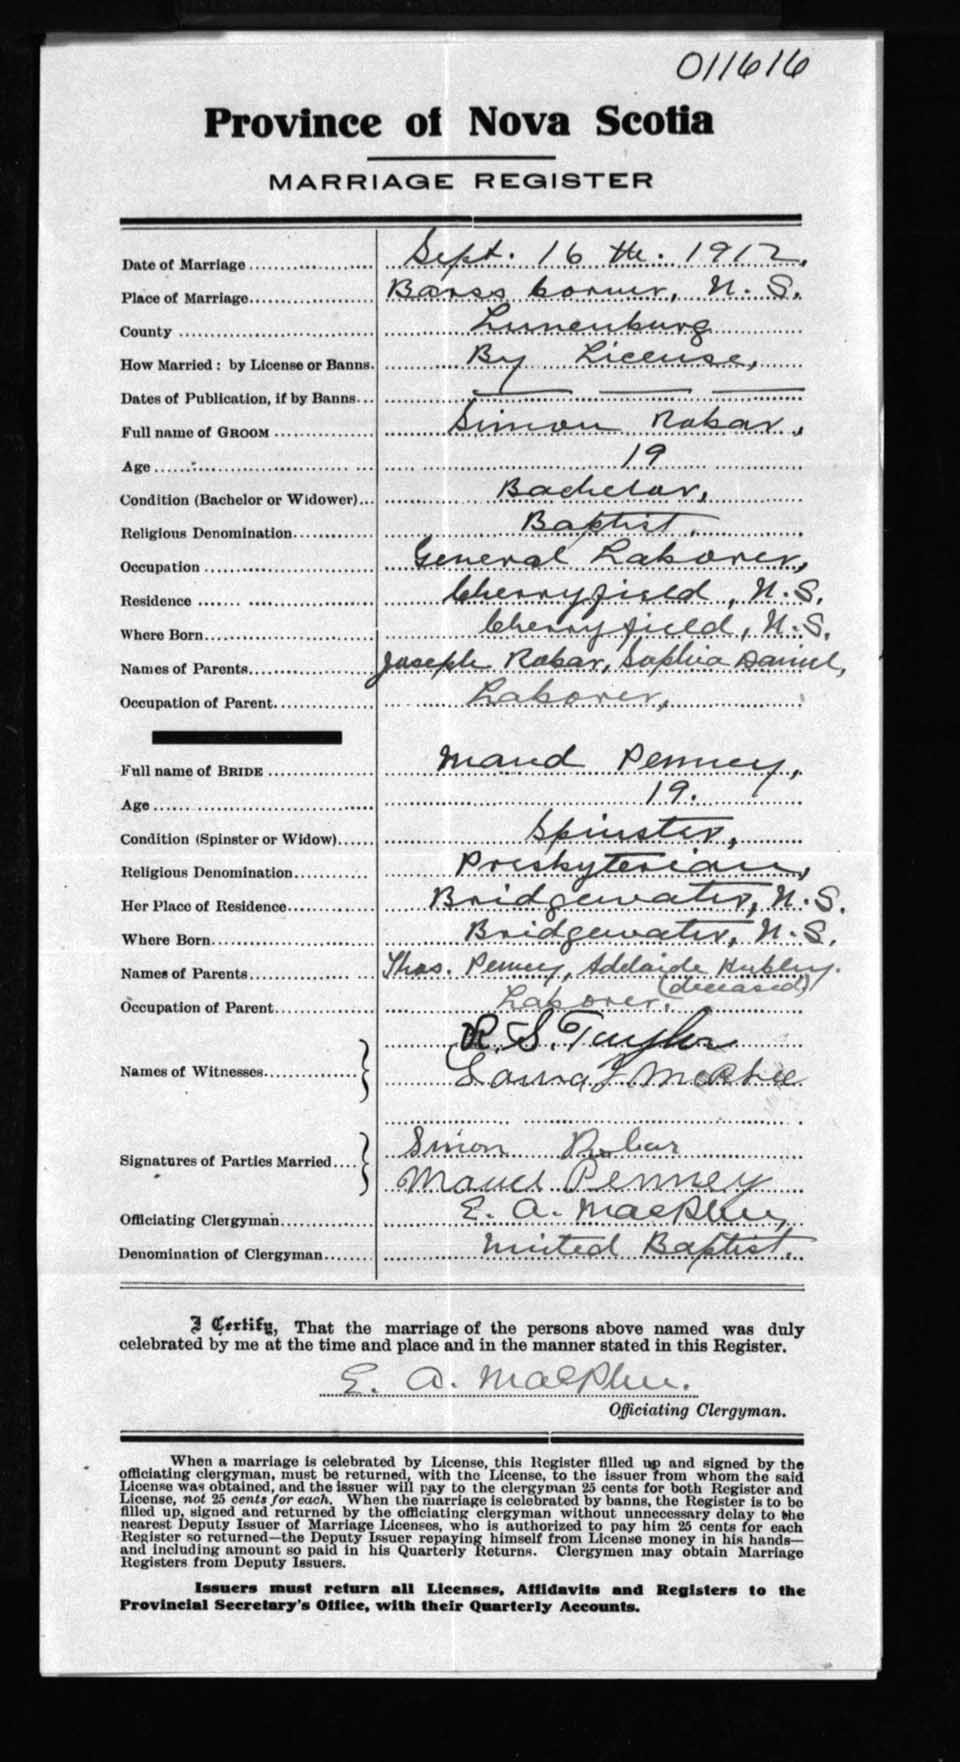 011616
Province of Nova Scotia
MARRIAGE REGISTER
Date of Marriage Sept. 16 th. 1912,
Place of Marriage Barss Corner, N. S.
County Lunenburg
How Married: by License or Banns. By License,
Dates of Publication, if by Banns
Full name of GROOM Simon Robar,
Age 19
Condition (Bachelor or Widower) Bachelor,
Religious Denomination Baptist.
Occupation General Laborer,
Residence Cherryfield, N. S.
Where Born Cherryfield, N. S.
Names of Parents Joseph Robar, Sophia Daniel,
Occupation of Parent Laborer,
Full name of BRIDE Maud Penney,
Age 19.
Condition (Spinster or Widow) Spinster,
Religious Denomination Presbyterian,
Her Place of Residence Bridgewater, N. S.
Where Born Bridgewater, N. S.
Names of Parents Thos. Penney, Adelaide Hubley.
(deceased)
Occupation of Parent Laborer.
R. S. Taylor
Names of Witnesses Laura J. McPhee
Simon Robar
Signatures of Parties Married
Maud Penney
Officiating Clergyman E. A. MacPhee,
Denomination of Clergyman United Baptist.
I Certify, That the marriage of the persons above named was duly
celebrated by me at the time and place and in the manner stated in this Register.
E. A. MacPhee.
Officiating Clergyman.
When a marriage is celebrated by License, this Register filled up and signed by the
officiating clergyman, must be returned, with the License, to the issuer from whom the said
License was obtained, and the issuer will pay to the clergyman 25 cents for both Register and
License, not 25 cents for each. When the marriage is celebrated by banns, the Register is to be
filled up, signed and returned by the officiating clergyman without unnecessary delay to the
nearest Deputy Issuer of Marriage Licenses, who is authorized to pay him 25 cents for each
Register so returned—the Deputy Issuer repaying himself from License money in his hands—
and including amount so paid in his Quarterly Returns. Clergymen may obtain Marriage
Registers from Deputy Issuers.
Issuers must return all Licenses, Affidavits and Registers to the
Provincial Secretary's Office, with their Quarterly Accounts.